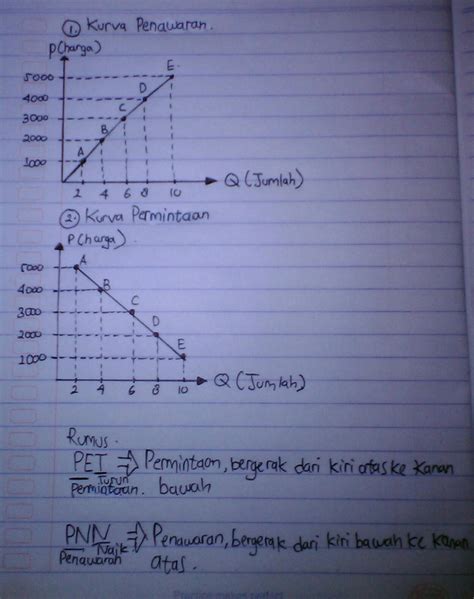 1. Kurva Penawaran.
P(harga)
5000
4000
3000
2000
1000
A
B
C
D
E.
2 4 6 8 10
Q (Jumlah)
2. Kurva Permintaan
P(harga)
5000
4000
3000
2000
1000
A
B
C
D
E
2 4 6 8 10
Q (Jumlah)
Rumus.
PET => Permintaan, bergerak dari kiri atas ke kanan
Turun
Permintaan. bawah
PNN => Penawaran, bergerak dari kiri bawah ke kanan
Naik
Penawaran atas.